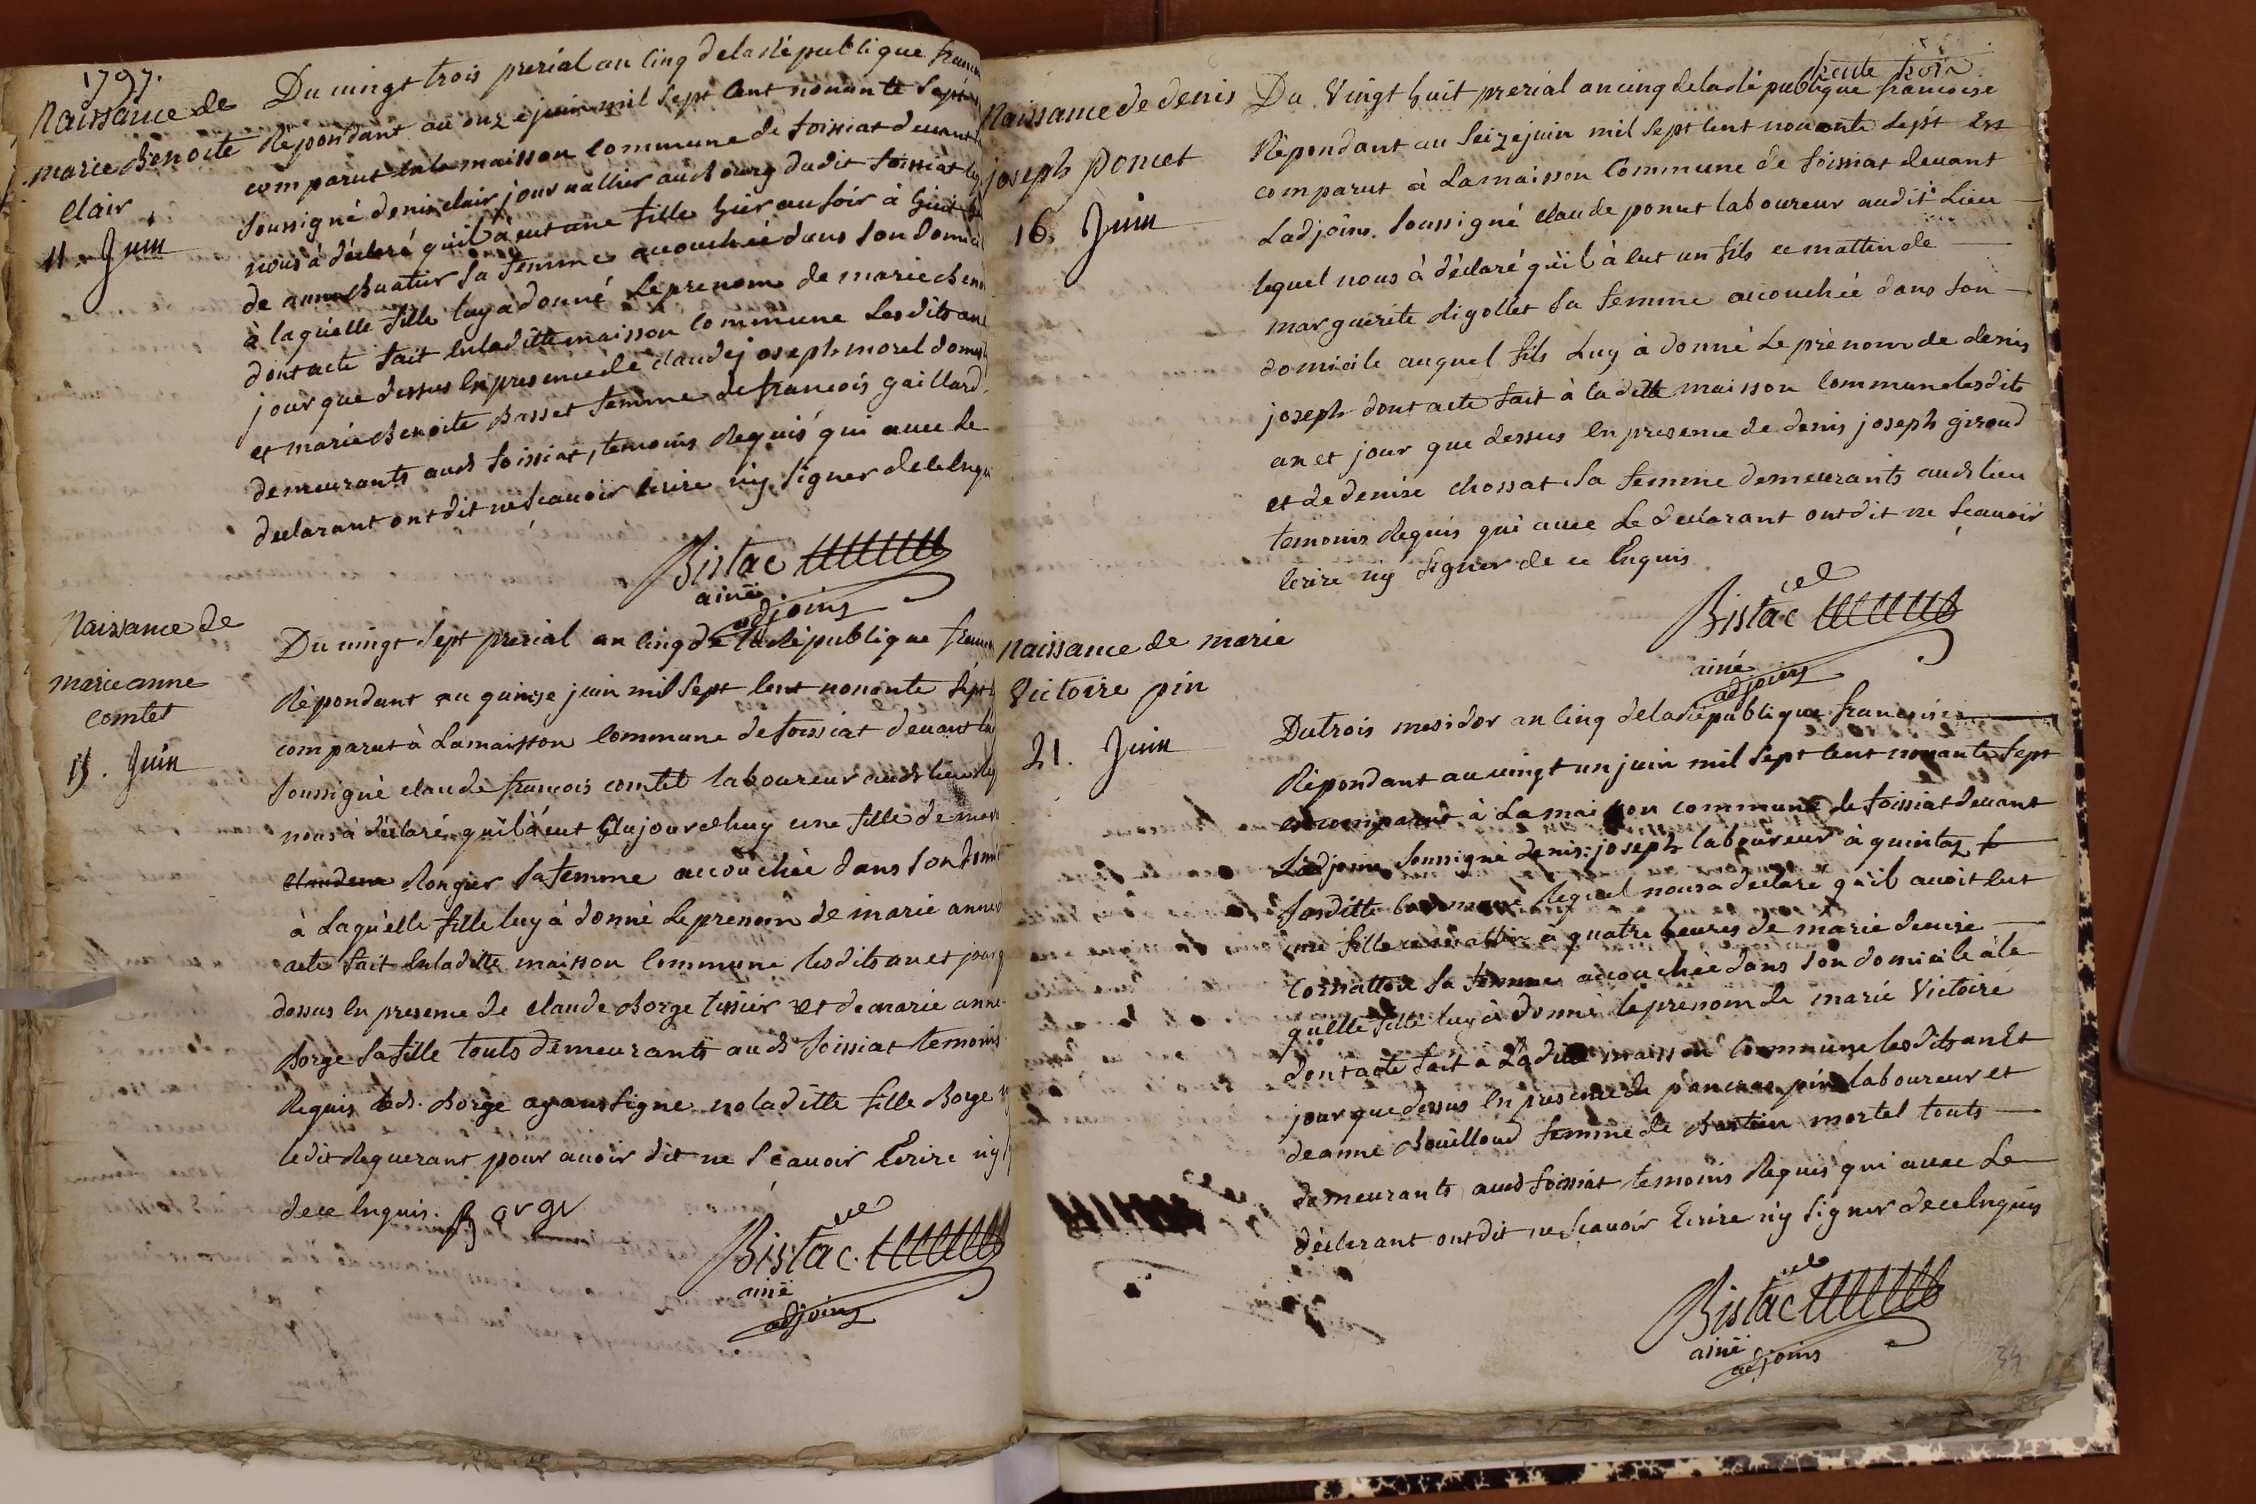 1797.
Naissance de
marie Benoite
Clair
11. Juin
Du vingt trois prerial an cinq de la République
Répondant au onze juin mil sept cent nonante sept
comparut en la maison commune de foissiat devant
soussigné denis clair journallier au Bourg dudit foissiat
nous à déclaré qu'il à eut une fille hier au soir à huit
de anne Buatier sa femme accouchée dans son
à laquelle fille luy a donné le prenom de marie
dont acte fait en laditte maison commune lesdits an
jour que dessus en presence de claude joseph morel
et marie Benoite Basset femme de francois gaillard
demeurants aud foissiat, temoins Requis qui avec le
declarant ont dit ne scavoir ecrire ny signer de ce
Bistac
ainé
adjoins
Naissance de
marie anne
comtet
15. Juin
Du vingt sept prerial an cinq de la République
Répondant au quinze juin mil sept cent nonante sept
comparut à la maison commune de foissiat devant
soussigné claude francois comtet laboureur aud lieu
nous à déclaré qu'il à eut aujourdhuy une fille de
Rongier sa femme accouchée dans son
à Laquelle fille luy à donné le prenom de marie anne
acte fait en laditte maison commune lesdits an et jour
dessus en presence de claude Borge tissier et de marie anne
Borge sa fille touts demeurants aud foissiat temoins
Requis led. Borge ayant signé no laditte fille Borge
ledit Requerant pour avoir dit ne scavoir Ecrire ny
de ce enquis. Borge
Bistac
ainé
adjoins
trente trois
Naissance de denis
joseph poncet
16. Juin
Du Vingt huit prerial an cinq de la République francoise
Répondant au seize juin mil sept cent nonante sept Est
comparut à La maison Commune de foissiat devant
Ladjoins soussigné claude poncet laboureur audit Lieu
lequel nous à déclaré qu'il à eut un fils ce mattin de
marguerite Rigollet sa femme accouchée dans son
domicile auquel fils Luy à donné Le prénom de denis
joseph dont acte fait à la ditte maison commune lesdits
an et jour que dessus en presence de denis joseph giroud
et de denise chossat sa femme demeurants aud lieu
temoins Requis qui avec Le declarant ont dit ne scavoir
ecrire ny signer de ce Enquis
Bistac
ainé
adjoins
Naissance de marie
Victoire pin
21. Juin
Du trois mesidor an cinq de la République francoise
Répondant au vingt un juin mil sept cent nonante sept
est comparut à La maison commune de foissiat devant
Ladjoins soussigné denis joseph laboureur à
lequel nous a declaré qu'il avoit eut
une fille ce mattin à quatre heures de marie denise
sa femme accouchée dans son domicile à la
quelle fille luy à donné le prenom de marie Victoire
dont acte fait à Laditte maison commune lesdits an Et
jour que dessus en presence de pancrace pin laboureur et
de anne Bouilloud femme de mortel touts
demeurants aud foissiat temoins Requis qui avec Le
déclarant ont dit ne scavoir Ecrire ny signer de ce enquis
Bistac
ainé
adjoins
34